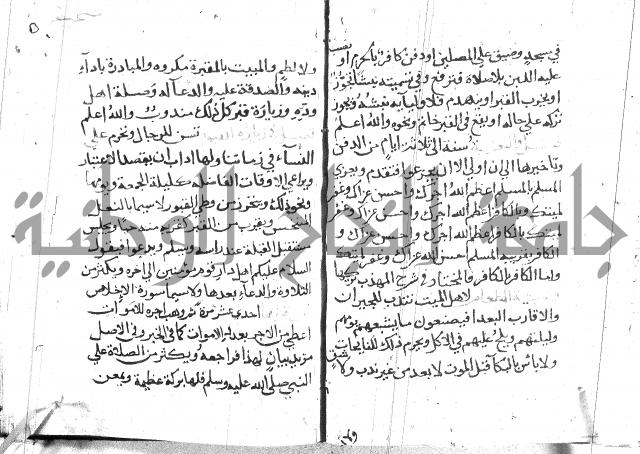 في مسجد وضيق على المصلين او دفن كافر بالحرم او
عليه الدين بلا صلاة
او يخرب القبر او ينهدم قلا
تركه على حاله او يقع في القبر خاتم ونحوه والله اعلم
سنة الى ثلاثة ايام من الدفن
وتاخيرها الى ان اولى الا ان يجزعوا فتقدم ويعزى
المسلم بالمسلم اعظم الله اجرك واحسن عزاك وغفر
لميتك وبالكافر اعظم الله اجرك واحسن عزاك و
المسلم بالكافر اعظم الله اجرك واحسن عزاك و
الكافر بقريبه المسلم احسن الله عزاك وغفر لميتك
واما الكافر بالكافر فالمختار في شرح المهذب تركها
لاهل الميت تندب للجيران
والاقارب البعدا فيصنعون ما يشبعهم يومهم
وليلتهم ويلح عليهم في الاكل ويحرم ذلك للنايحات
ولا باس بالبكا قبل الموت لا بعده من غير ندب ولا شق
ولا لطم والمبيت بالمقبرة مكروه والمبادرة باداء
دينه والصدقة عليه والدعاء له وصلة اهل
وده وزيارة قبره كل ذلك مندوب والله اعلم
تسن للرجال وتحرم على
النساء في زماننا ولها اداب ان يقصد الاعتبار
ويراعي الاوقات الفاضلة كليلة الجمعة ويومها
ونحو ذلك ويحترز من وطي القبور لا سيما بالنعل
النجس ويقرب من القبر كقربه منه حيا ويجلس
مستقبل القبلة عند راسه ويسلم ويدعو فيقول
السلام عليكم اهل دار قوم مومنين الى اخره ويكثر من
التلاوة والدعاء بعدها ولا سيما سورة الاخلاص
احدى عشر مرة ثم يوهب اجره للاموات
اعطي من الاجر بعدد الاموات كما في الخبر وفي الاصل
مزيد بيان لهذا فراجعه ويكثر من الصلاة على
النبي صلى الله عليه وسلم فلها بركة عظيمة ويمعن
جامعة النجاح الوطنية